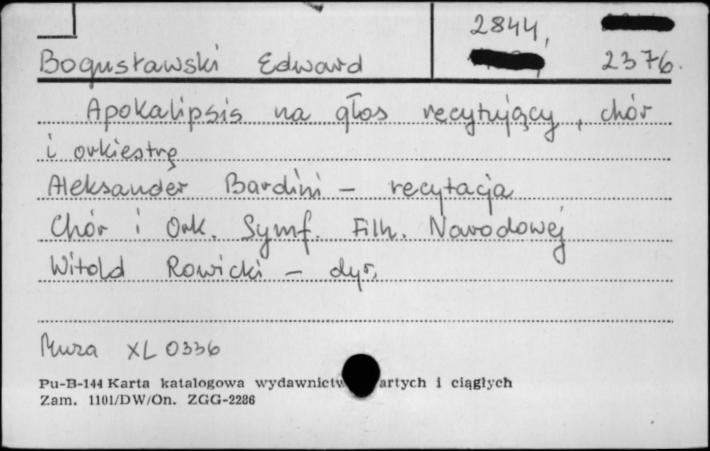 2844,
Bogusławski Edward 2376.
Apokalipsis na głos recytujący, chór
i orkiestrę
Aleksander Bardini – recytacja
Chór i Ork. Symf. Filh. Narodowej
Witold Rowicki – dyr.
Muza XL 0336
Pu-B-144 Karta katalogowa wydawnictw artych i ciągłych
Zam. 1101/DW/On. ZGG-2286